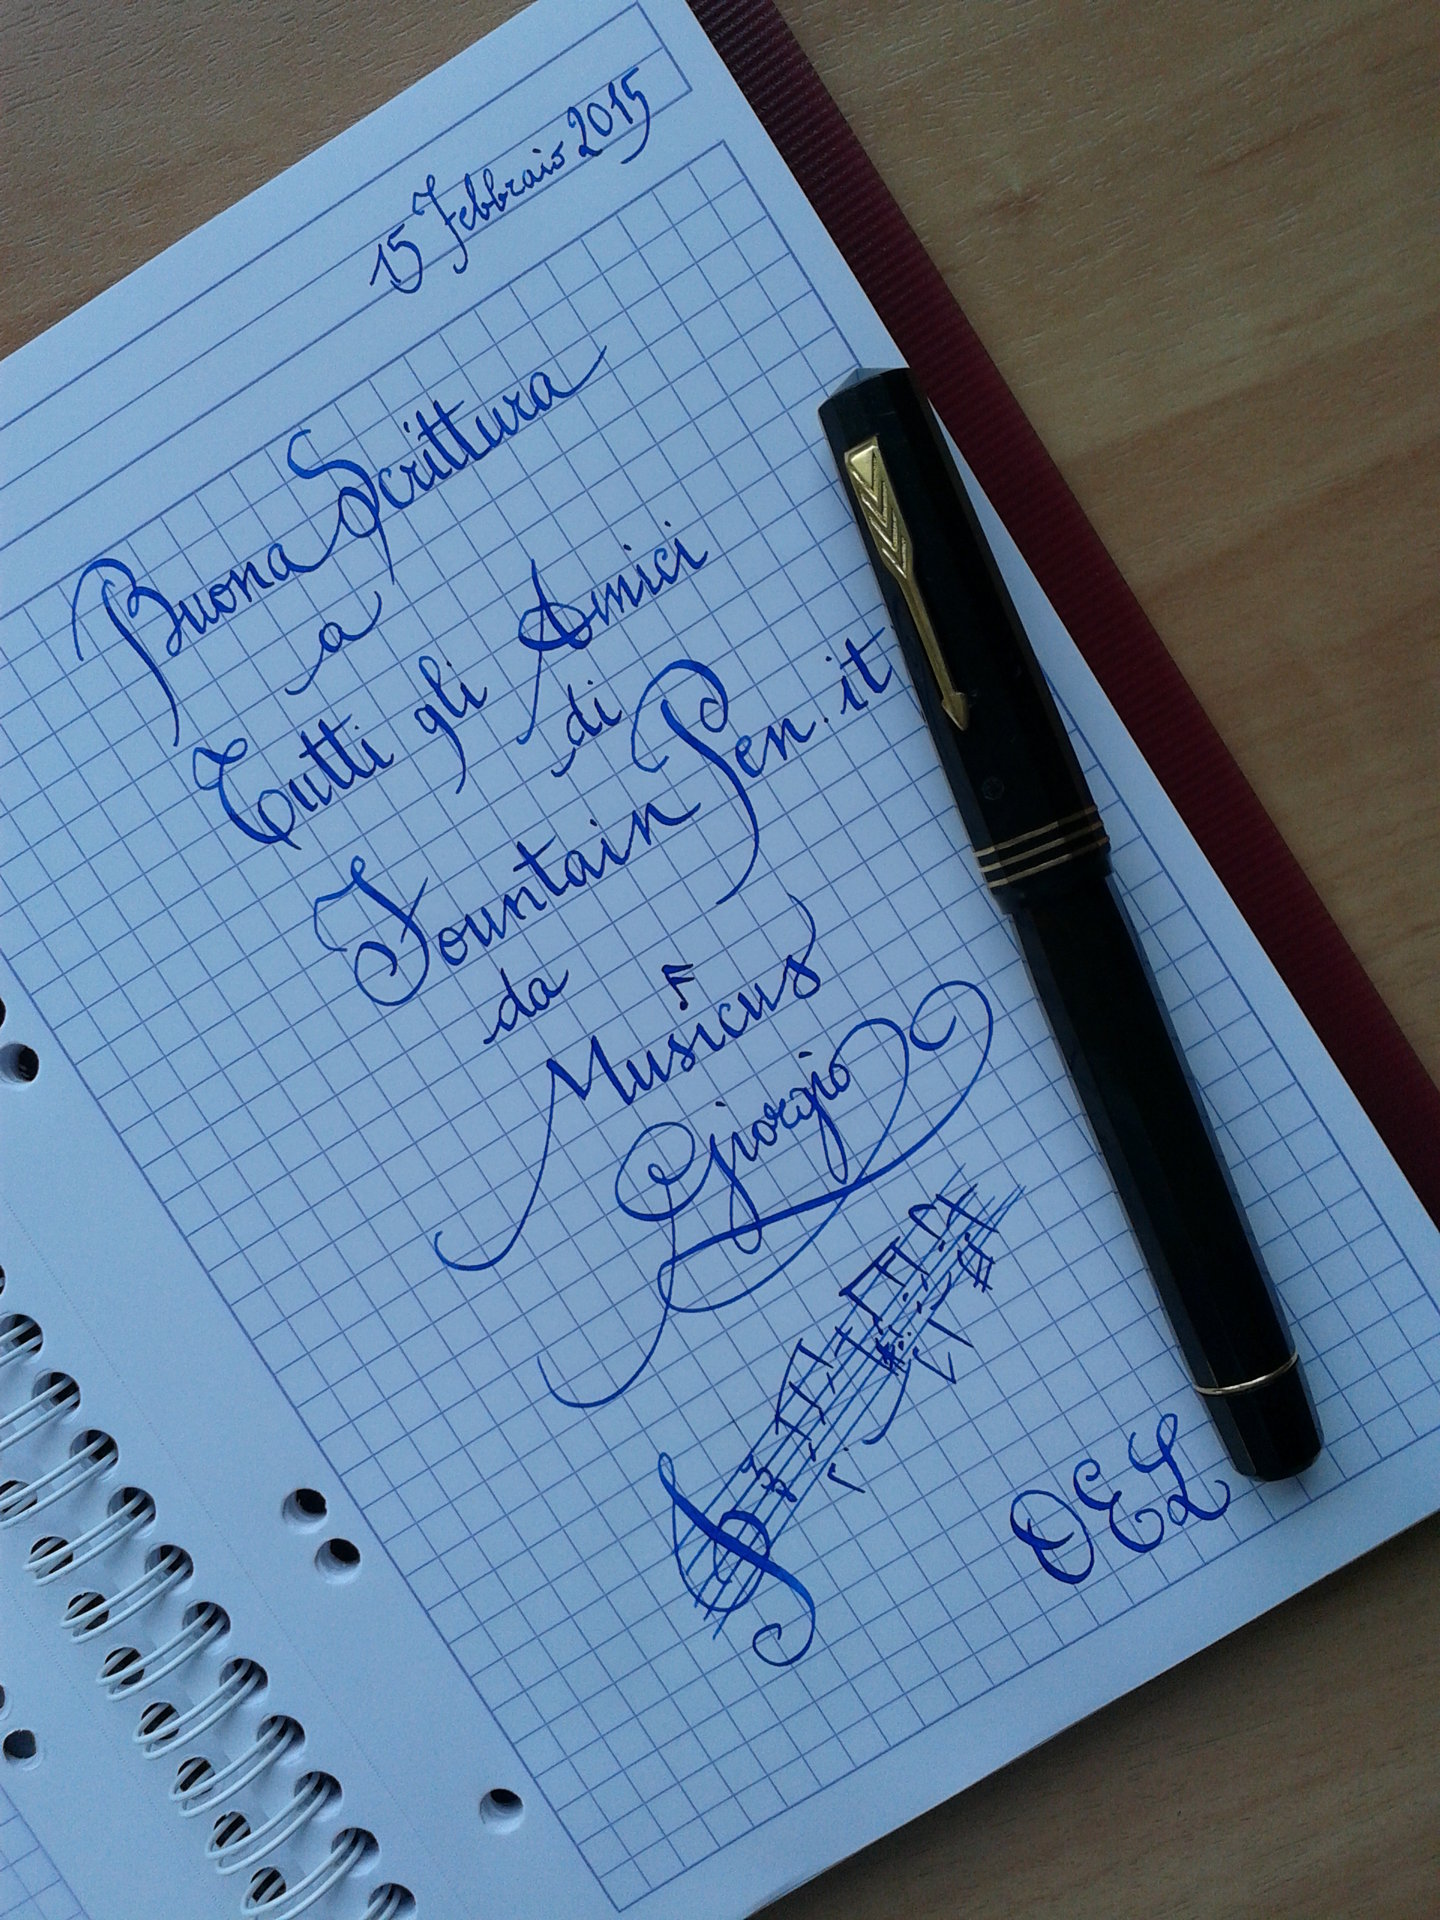 15 Febbraio 2015
Buona Scrittura
a
Tutti gli Amici
di
Fountain Pen.it
da
Musicus
Giorgio
OEL